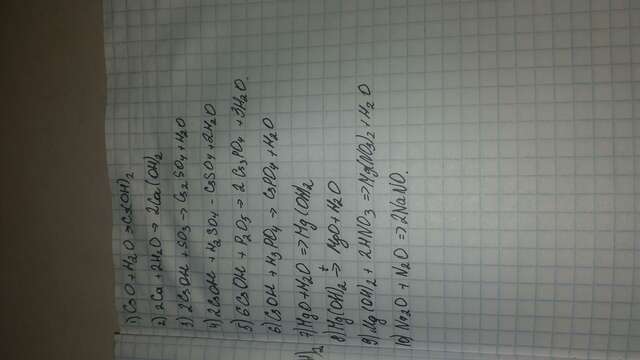 1) CsO + H2O → Cs(OH)2
2) 2Ca + 2H2O → 2Ca(OH)2
3) 2CsOH + SO3 → Cs2SO4 + H2O
4) 2CsOH + H2SO4 - CsSO4 + 2H2O
5) 6CsOH + P2O5 → 2Cs3PO4 + 3H2O.
6) CsOH + H3PO4 → CsPO4 + H2O
7) MgO + H2O => Mg(OH)2
8) Mg(OH)2 => MgO + H2O
9) Mg(OH)2 + 2HNO3 => Mg(NO3)2 + H2O
10) Na2O + N2O => 2NaNO.